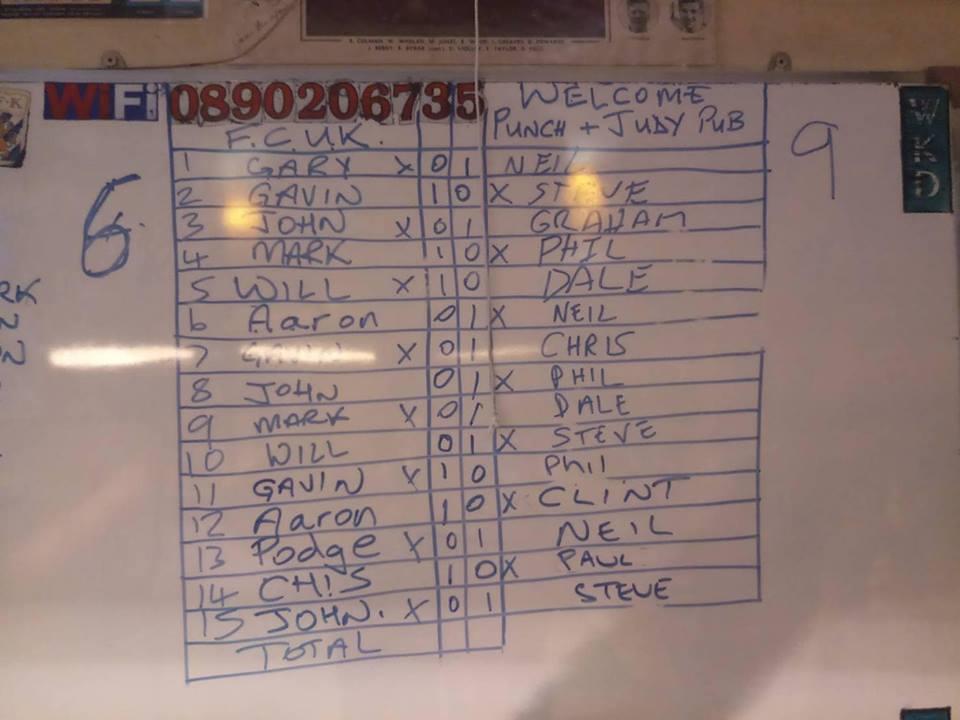 WiFi 0890206735 WELCOME
F.C.U.K. PUNCH + JUDY PUB
1 GARY X 0 1 NEIL
2 GAVIN 1 0 X STEVE
3 JOHN X 0 1 GRAHAM
4 MARK 1 0 X PHIL
5 WILL X 1 0 DALE
6 Aaron 0 1 X NEIL
7 GAVIN X 0 1 CHRIS
8 JOHN 0 1 X PHIL
9 MARK X 0 1 DALE
10 WILL 0 1 X STEVE
11 GAVIN X 1 0 Phil
12 Aaron 1 0 X CLINT
13 Podge X 0 1 NEIL
14 CH!S 1 0 X PAUL
15 JOHN. X 0 1 STEVE
TOTAL
6
9
WKD
RK
N
N